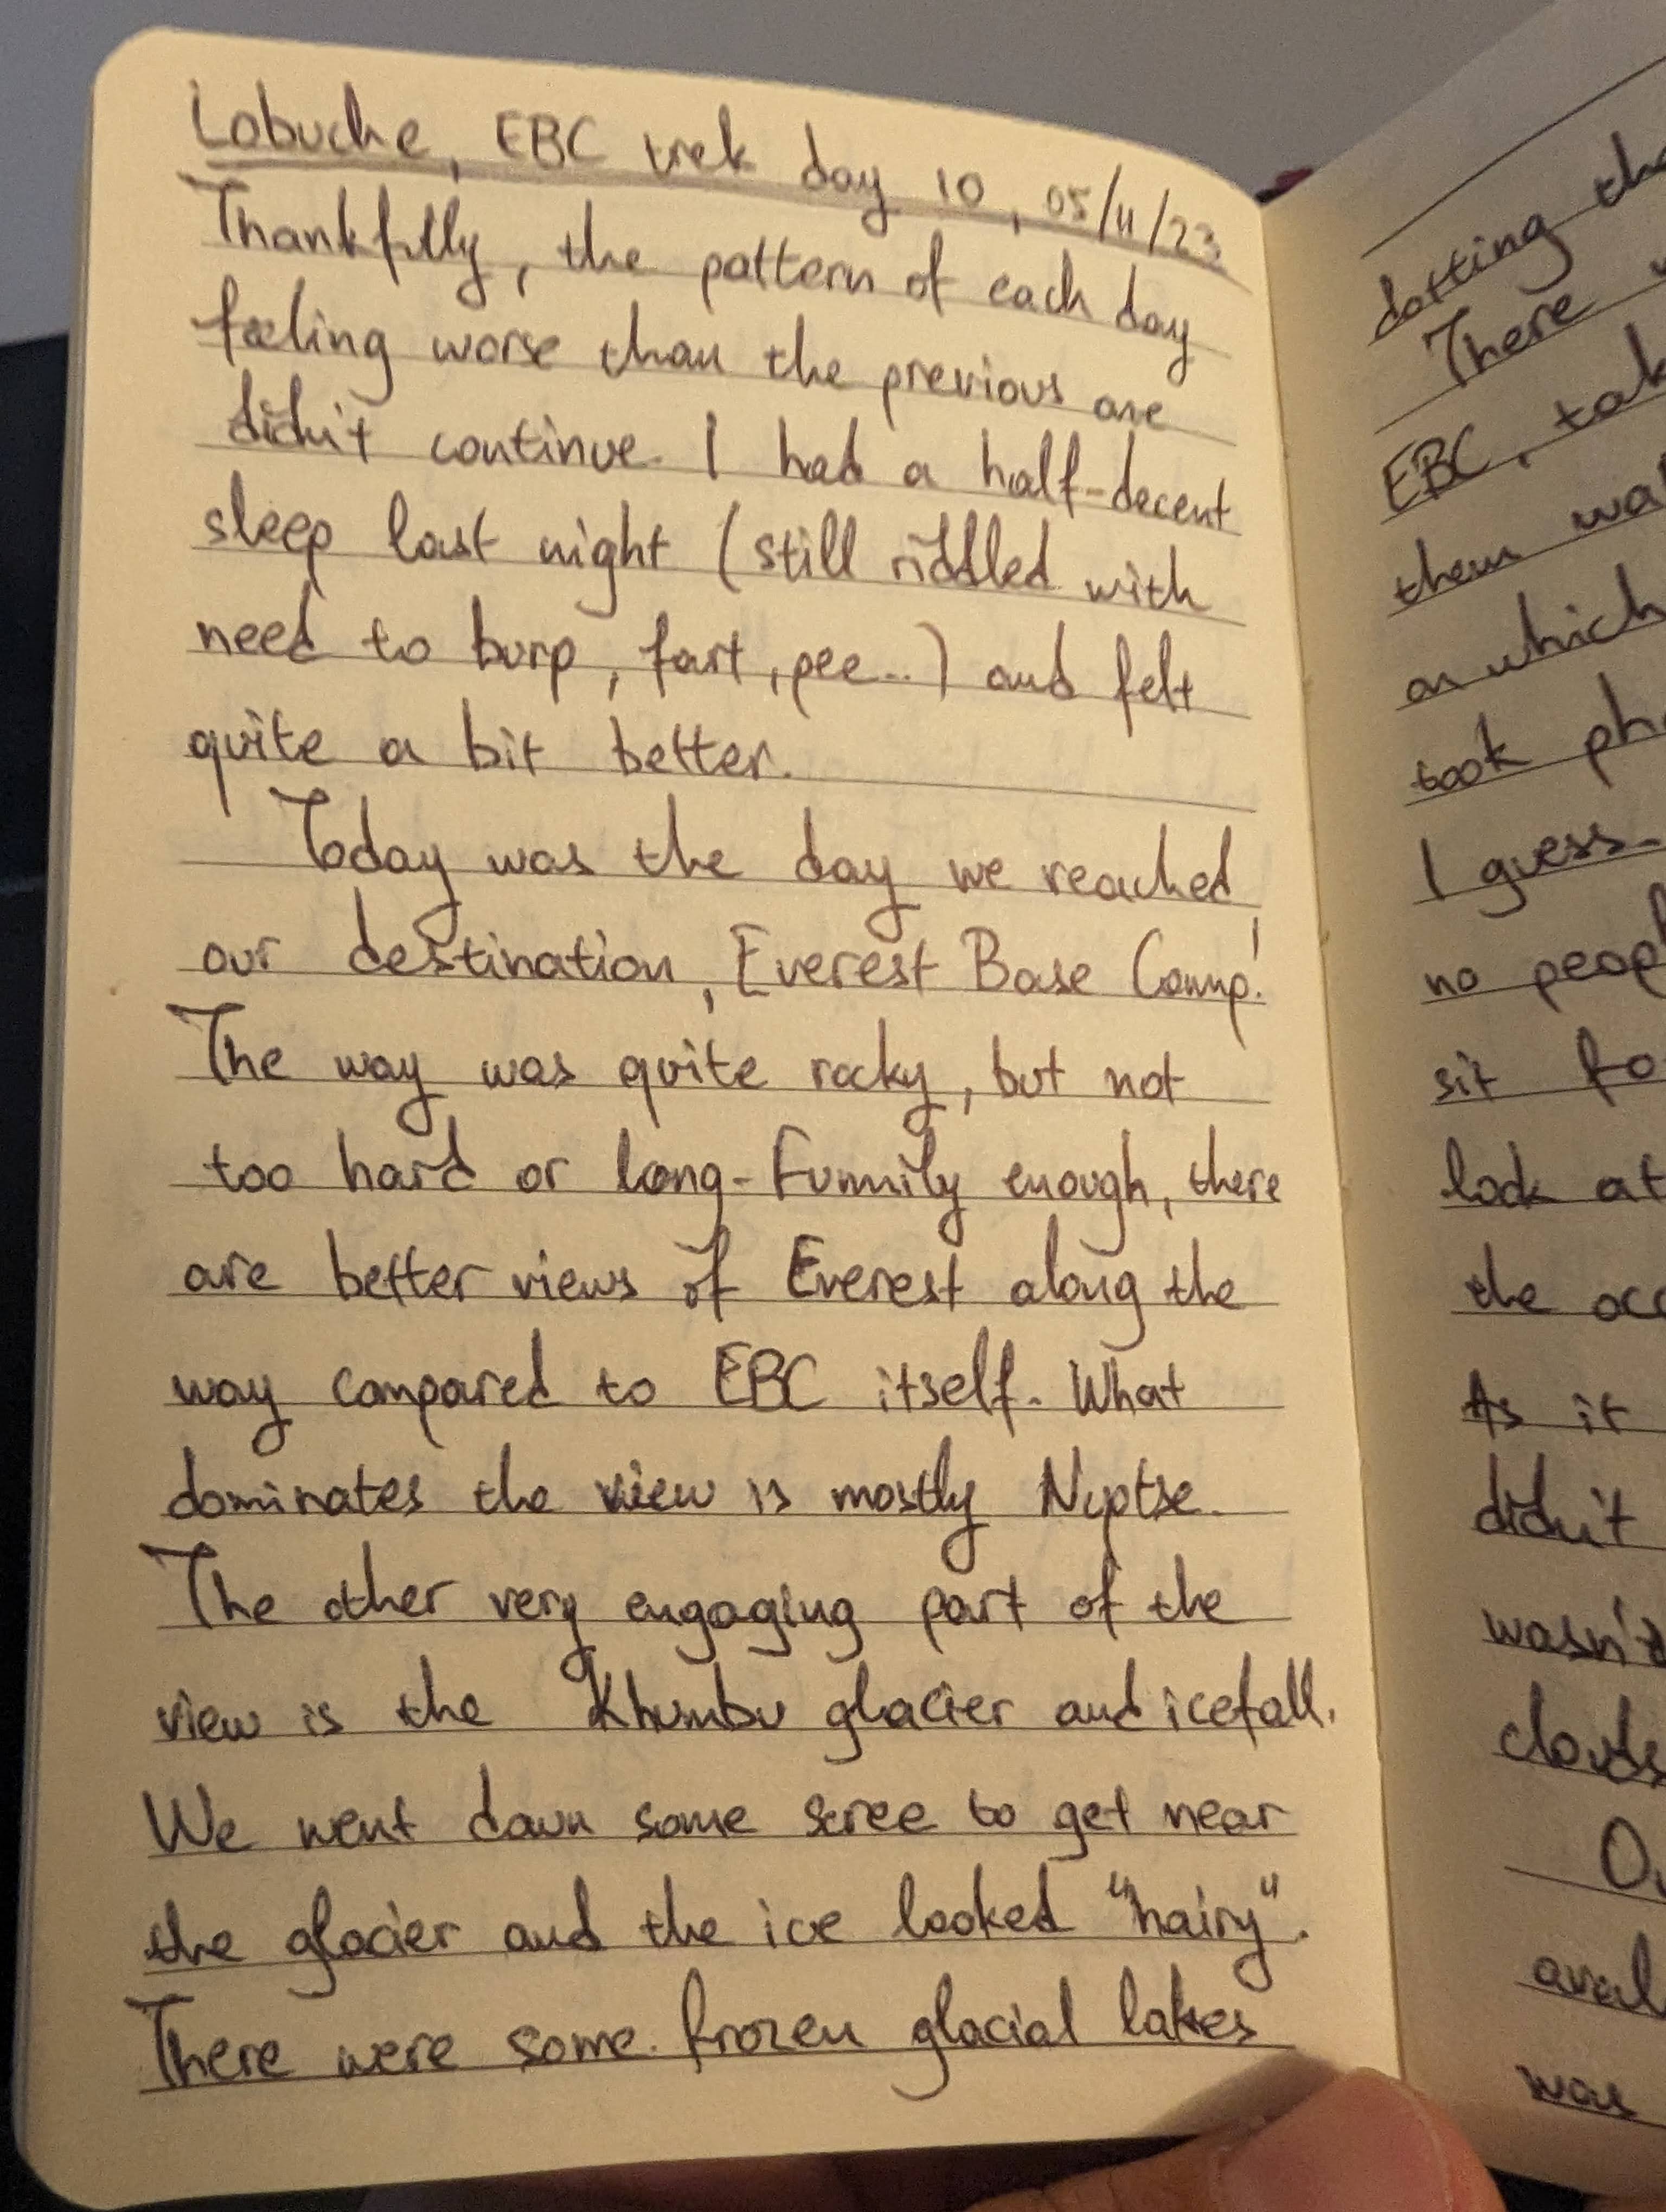 Lobuche, EBC trek day 10, 05/11/23
Thankfully, the pattern of each day
feeling worse than the previous one
didn't continue. I had a half-decent
sleep last night (still riddled with
need to burp, fart, pee...) and felt
quite a bit better.
Today was the day we reached
our destination, Everest Base Camp!
The way was quite rocky, but not
too hard or long. Funnily enough, there
are better views of Everest along the
way compared to EBC itself. What
dominates the view is mostly Nuptse.
The other very engaging part of the
view is the Khumbu glacier and icefall.
We went down some scree to get near
the glacier and the ice looked "hairy".
There were some frozen glacial lakes
dotting the
There
EBC, 
them
on which
took
I guess.
no
sit
look at
the
As it
didn't
wasn't
clouds
was